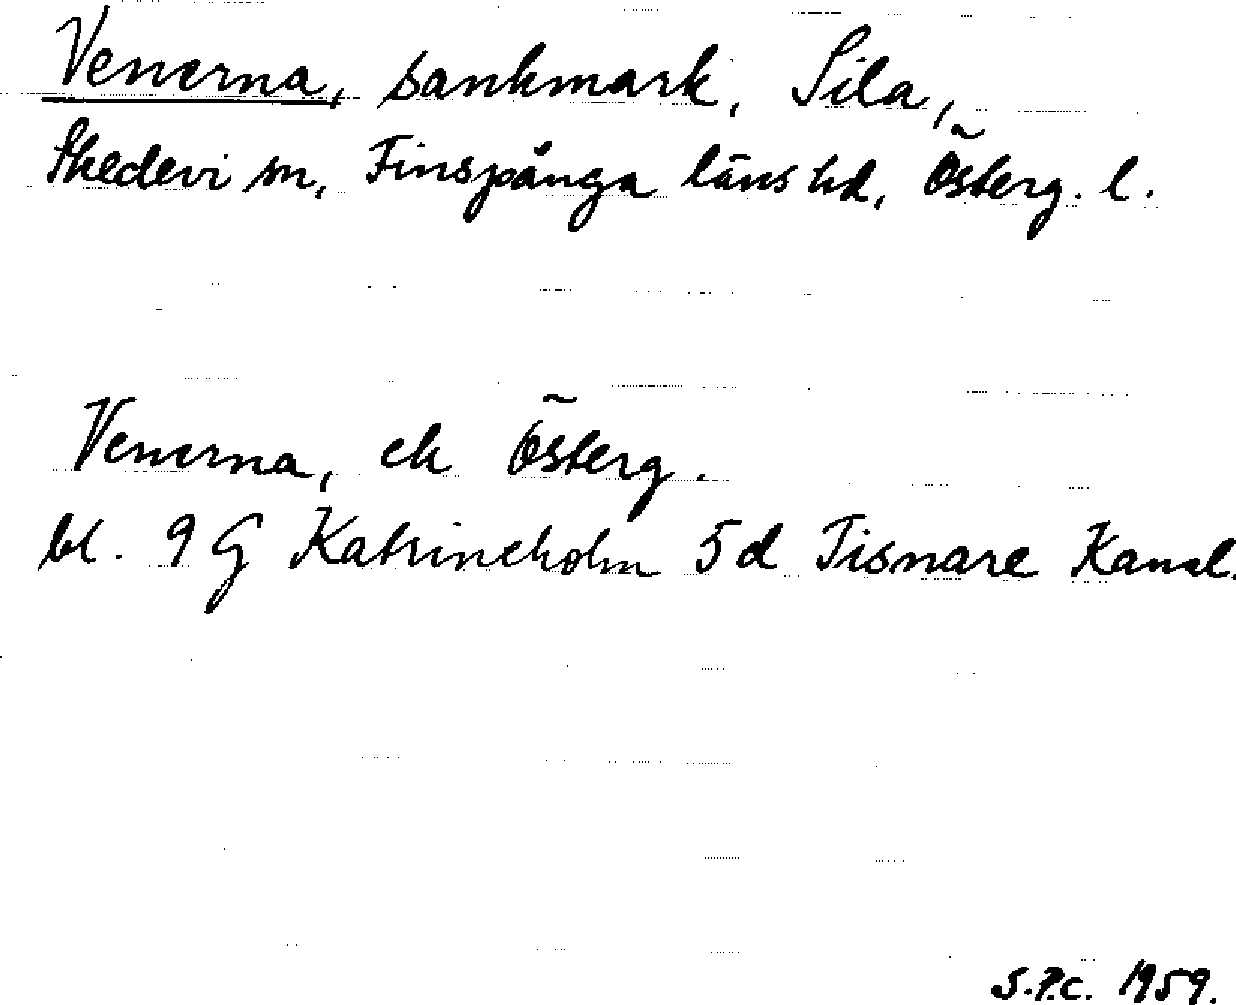 Venerna, sankmark, Sila,
Skedevi sn, Finspånga läns hd, Österg. l.
Venerna, ek Österg.
bl. 9 G Katrineholm 5 d Tisnare Kanal.
S.P.c. 1959.